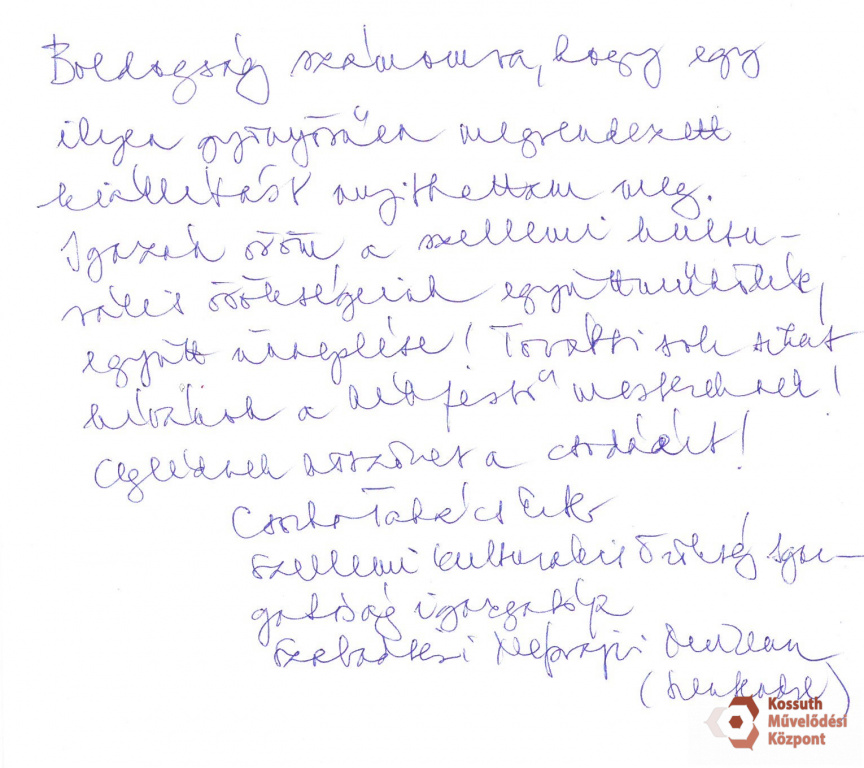 Boldogság számomra, hogy egy
ilyen gyönyörűen megrendezett
kiállítást nyithattam meg.
Igazán öröm a szellemi kultu-
rális örökségeink együttműködése,
együtt ünneplése! További sok sikert
kívánok a kékfestő mestereknek!
Ceglédnek köszönet a csodáért!
Csonka-Takács Eszter
Szellemi Kulturális Örökség Igaz-
gatóság igazgatója
Szabadtéri Néprajzi Múzeum
(Szentendre)
Kossuth
Művelődési
Központ